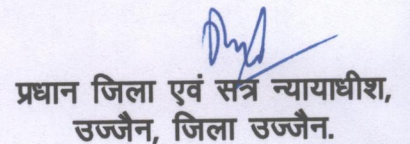 प्रधान जिला एवं सत्र न्यायाधीश,
उज्जैन, जिला उज्जैन.